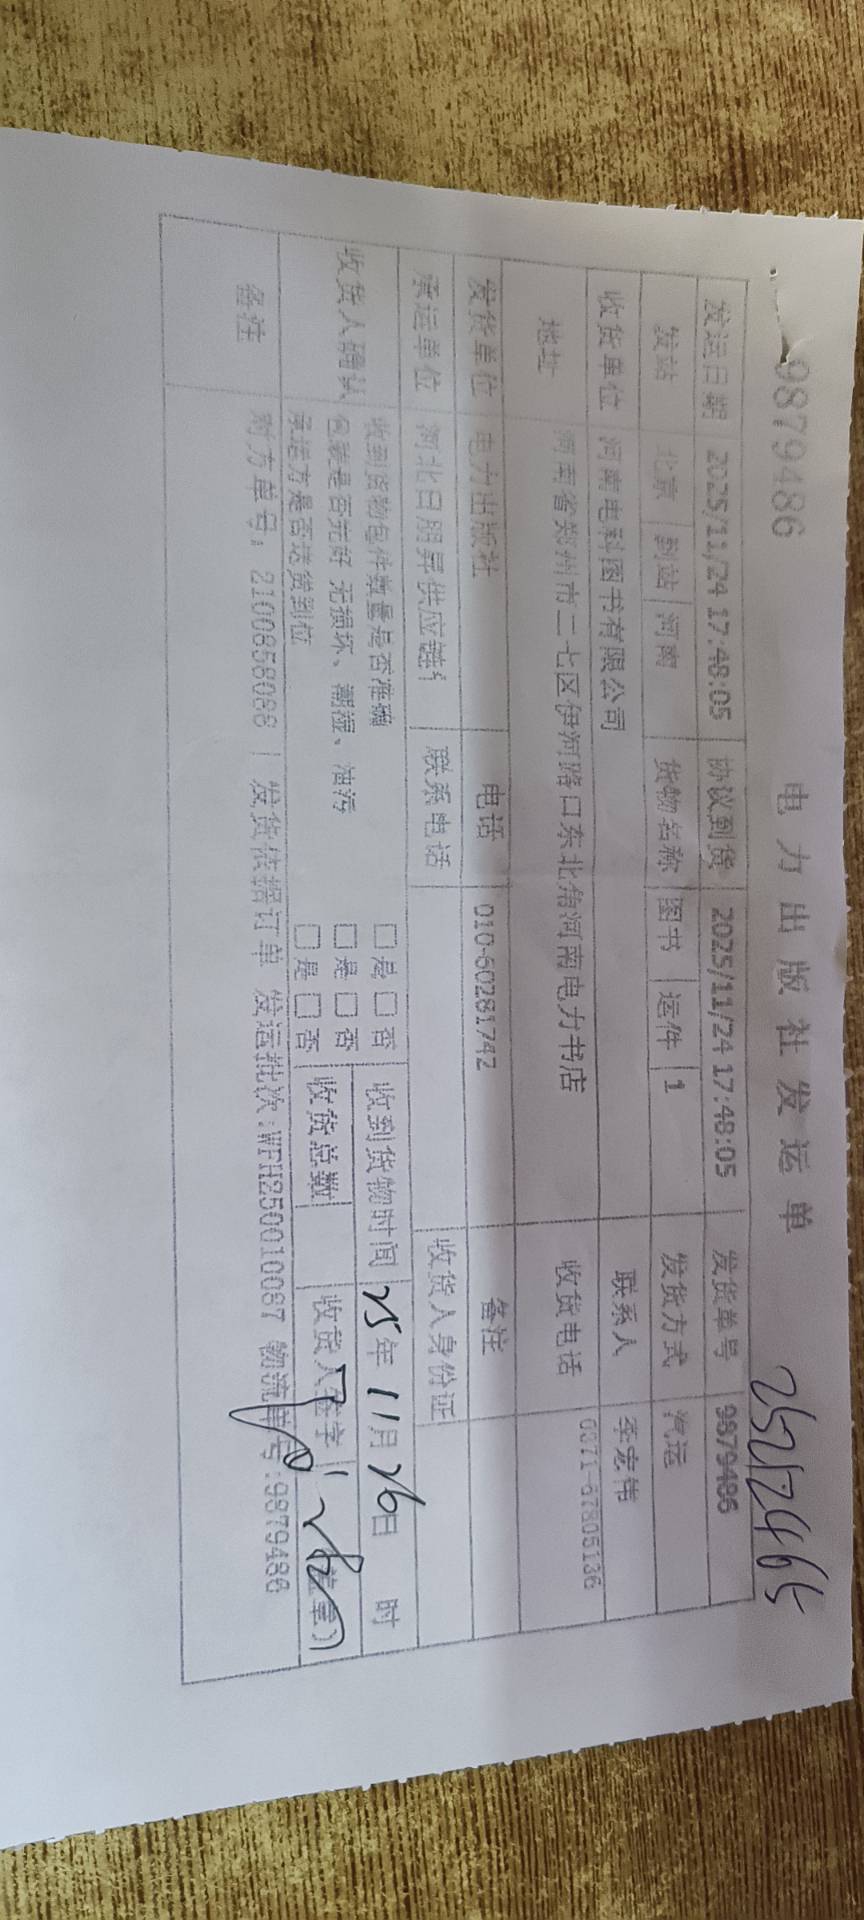 9879486 电力出版社发运单 25212465
发运日期 2025/11/24 17:48:05 协议到货 2025/11/24 17:48:05 发货单号 9879486
发站 北京 到站 河南 货物名称 图书 运件 1 发货方式 汽运
收货单位 河南电科图书有限公司 联系人 李宏伟
地址 河南省郑州市二七区伊河路口东北角河南电力书店 收货电话 0371-67905136
发货单位 电力出版社 电话 010-60281742 备注
承运单位 河北日朋昇供应链 联系电话 收货人身份证
收货人确认 收到货物包件数量是否准确 □是 □否 收到货物时间 25年11月26日 时
包装是否完好 无损坏、潮湿、油污 □是 □否 收货总数 收货人签字
承运方是否送货到位 □是 □否
备注 对方单号:2100858086 | 发货依据订单 发运批次:WFH250010087 物流单号:9879486